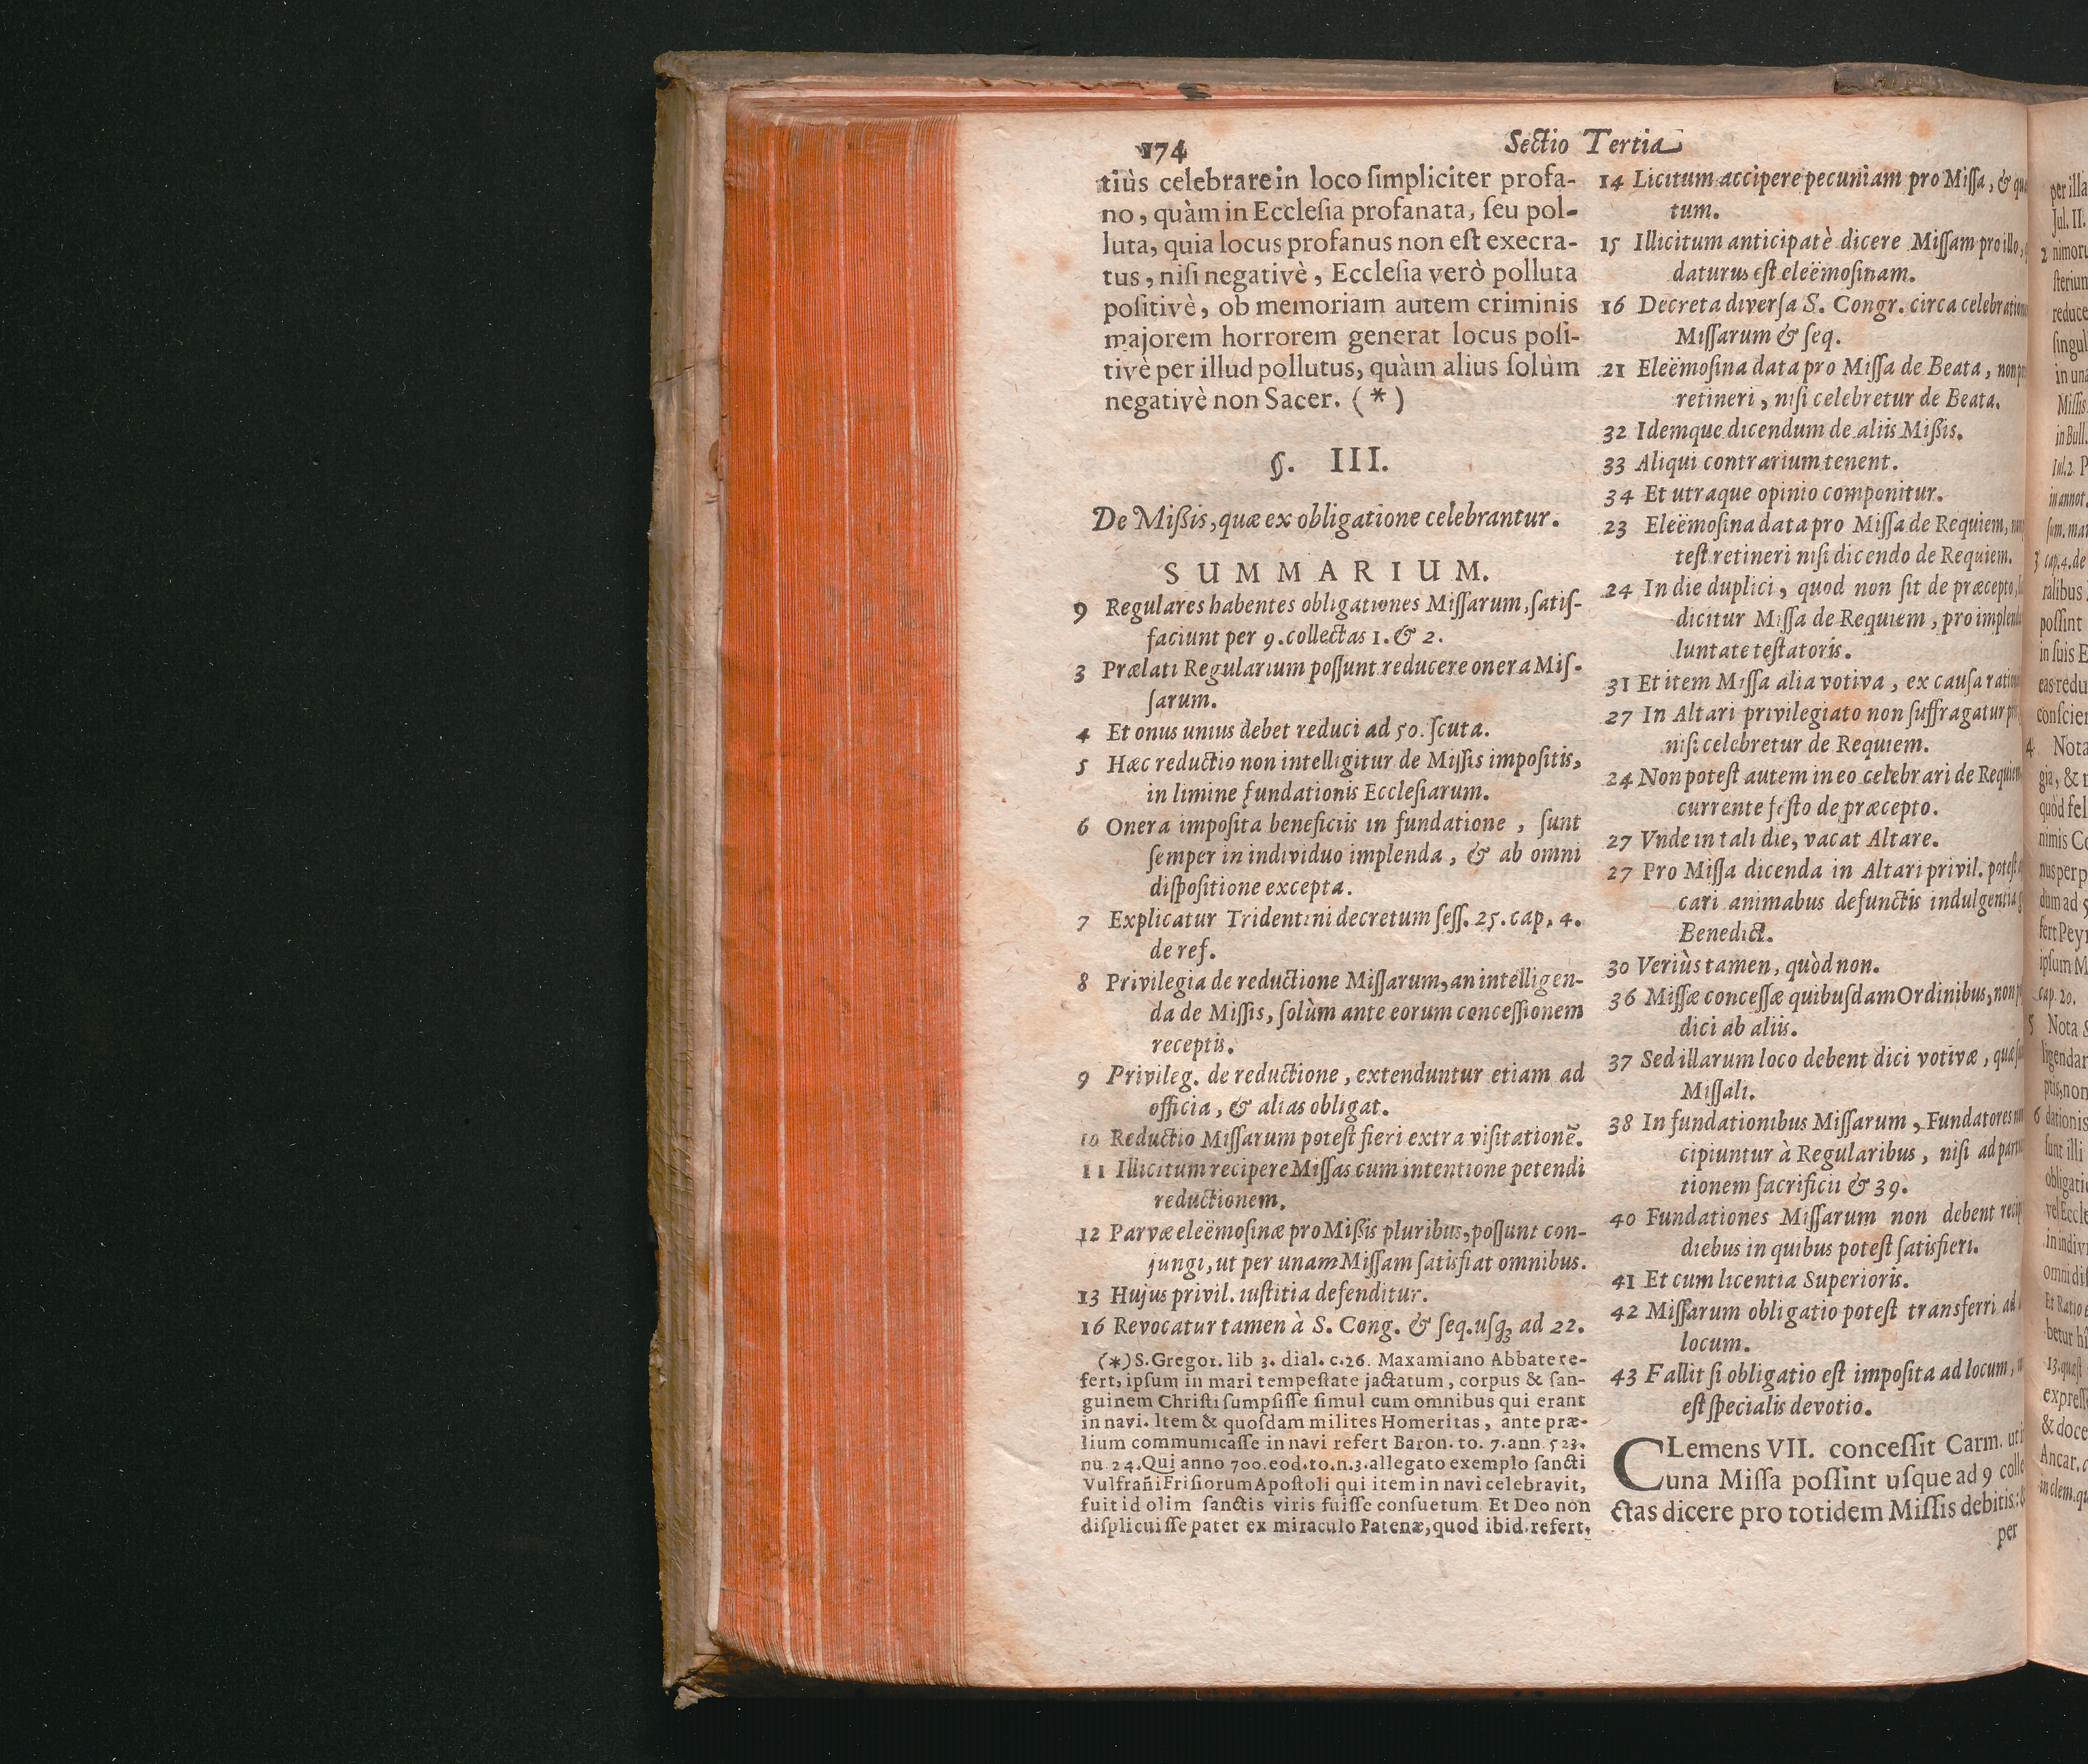 174 Sectio Tertia
tiùs celebrare in loco ſimpliciter profa-
no, quàm in Eccleſia profanata, ſeu pol-
luta, quia locus profanus non eſt execra-
tus, niſi negativè, Eccleſia verò polluta
poſitivè, ob memoriam autem criminis
majorem horrorem generat locus poſi-
tivè per illud pollutus, quàm alius ſolùm
negativè non Sacer. (*)
§. III.
De Mißis, quæ ex obligatione celebrantur.
SUMMARIUM.
9 Regulares habentes obligationes Miſſarum, ſatiſ-
faciunt per 9. collectas 1. & 2.
3 Prælati Regularium poſſunt reducere onera Miſ-
ſarum.
4 Et onus unius debet reduci ad 50. ſcuta.
5 Hæc reductio non intelligitur de Miſſis impoſitis,
in limine fundationis Eccleſiarum.
6 Onera impoſita beneficiis in fundatione, ſunt
ſemper in individuo implenda, & ab omni
diſpoſitione excepta.
7 Explicatur Tridentini decretum ſeſſ. 25. cap. 4.
de ref.
8 Privilegia de reductione Miſſarum, an intelligen-
da de Miſſis, ſolùm ante eorum conceſſionem
receptis.
9 Privileg. de reductione, extenduntur etiam ad
officia, & alias obligat.
10 Reductio Miſſarum poteſt fieri extra viſitationē.
11 Illicitum recipere Miſſas cum intentione petendi
reductionem.
12 Parvæ eleëmoſinæ pro Mißis pluribus, poſſunt con-
jungi, ut per unam Miſſam ſatisfiat omnibus.
13 Hujus privil. iuſtitia defenditur.
16 Revocatur tamen à S. Cong. & ſeq. uſq; ad 22.
(*) S. Gregor. lib 3. dial. c. 26. Maxamiano Abbate re-
fert, ipſum in mari tempeſtate jactatum, corpus & ſan-
guinem Chriſti ſumpſiſſe ſimul cum omnibus qui erant
in navi. Item & quoſdam milites Homeritas, ante præ-
lium communicaſſe in navi refert Baron. to. 7. ann. 523.
nu. 24. Qui anno 700. eod. to. n. 3. allegato exemplo ſancti
Vulfrañi Friſiorum Apoſtoli qui item in navi celebravit,
fuit id olim ſanctis viris fuiſſe conſuetum. Et Deo non
diſplicuiſſe patet ex miraculo Patenæ, quod ibid. refert,
14 Licitum accipere pecuniam pro Miſſa, &
tum.
15 Illicitum anticipatè dicere Miſſam pro illo,
daturus eſt eleëmoſinam.
16 Decreta diverſa S. Congr. circa
Miſſarum & ſeq.
21 Eleëmoſina data pro Miſſa de Beata, non
retineri, niſi celebretur de Beata.
32 Idemque dicendum de aliis Mißis.
33 Aliqui contrarium tenent.
34 Et utraque opinio componitur.
23 Eleëmoſina data pro Miſſa de Requiem,
teſt retineri niſi dicendo de Requiem.
24 In die duplici, quod non ſit de præcepto,
dicitur Miſſa de Requiem, pro
luntate teſtatoris.
31 Et item Miſſa alia votiva, ex cauſa
27 In Altari privilegiato non ſuffragatur
niſi celebretur de Requiem.
24 Non poteſt autem in eo celebrari de
currente feſto de præcepto.
27 Vnde in tali die, vacat Altare.
27 Pro Miſſa dicenda in Altari privil. poteſt
cari animabus defunctis indulgentia
Benedict.
30 Veriùs tamen, quòd non.
36 Miſſæ conceſſæ quibuſdam Ordinibus, non
dici ab aliis.
37 Sed illarum loco debent dici votivæ, quæ
Miſſali.
38 In fundationibus Miſſarum, Fundatores
cipiuntur à Regularibus, niſi ad
tionem ſacrificii & 39.
40 Fundationes Miſſarum non debent
diebus in quibus poteſt ſatisfieri.
41 Et cum licentia Superioris.
42 Miſſarum obligatio poteſt transferri ad
locum.
43 Fallit ſi obligatio eſt impoſita ad locum,
eſt ſpecialis devotio.
CLemens VII. conceſſit Carm. ut
una Miſſa poſſint uſque ad 9 colle
ctas dicere pro totidem Miſſis debitis:
per
per illa
Jul. II.
2
reduce
ſingul
in una
Miſſis
in Bull.
3 cap. 4. de
ralibus
poſſint
in ſuis E
eas redu
conſcien
4 Nota
gia, &
quòd fel
nimis
nus perp
dum ad 5
fert Peyr
ipſum M
cap. 20.
5 Nota
ligendar
ptis, non
6 dationis
ſunt illi
obligati
vel Eccle
in indivi
omni diſ
Et Ratio
betur
13. quæſt
expreſſ
& doce
Ancar.
in clem. qu